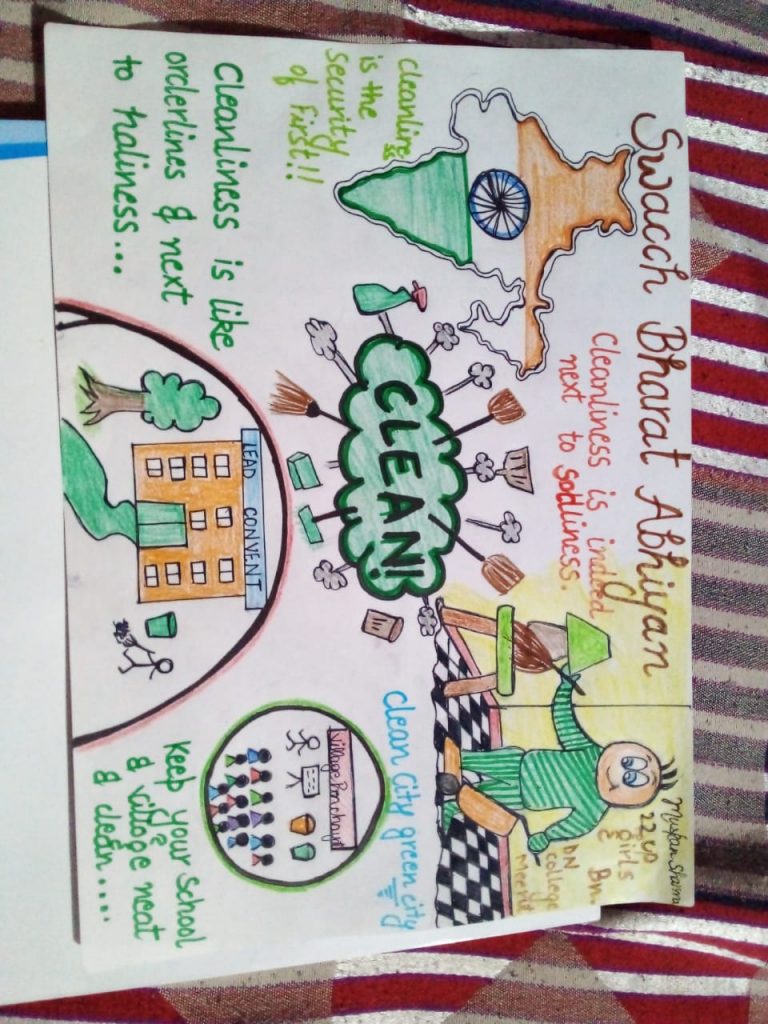 Swacch Bharat Abhiyan
Muskan Sharma
22 UP
girls
Bn.
DN
college
Meerut
Cleanliness is indeed
next to sodliness.
Cleanliness
is the
security
of first!!
Cleanliness is like
orderlines & next
to holiness...
CLEAN!
LEAD CONVENT
clean city green city
Village Panchayat
Keep your school
& village neat
& clean....